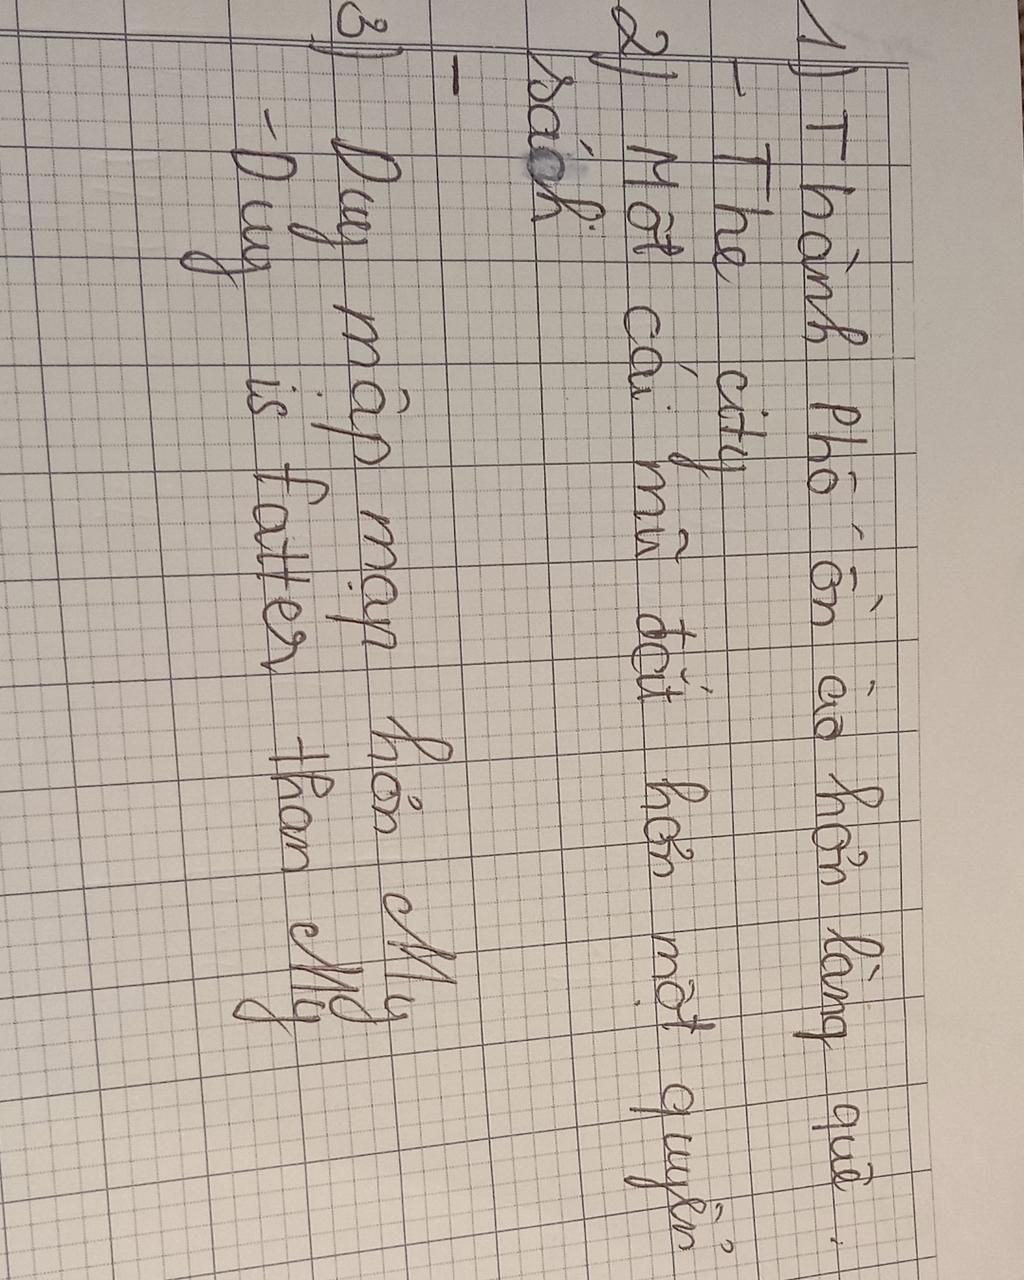 1) Thành Phố ồn ào hơn làng quê.
- The city
2) Một cái mũ đắt hơn một quyển
sách
-
3) Duy mập mạp hơn My
- Duy is fatter than My